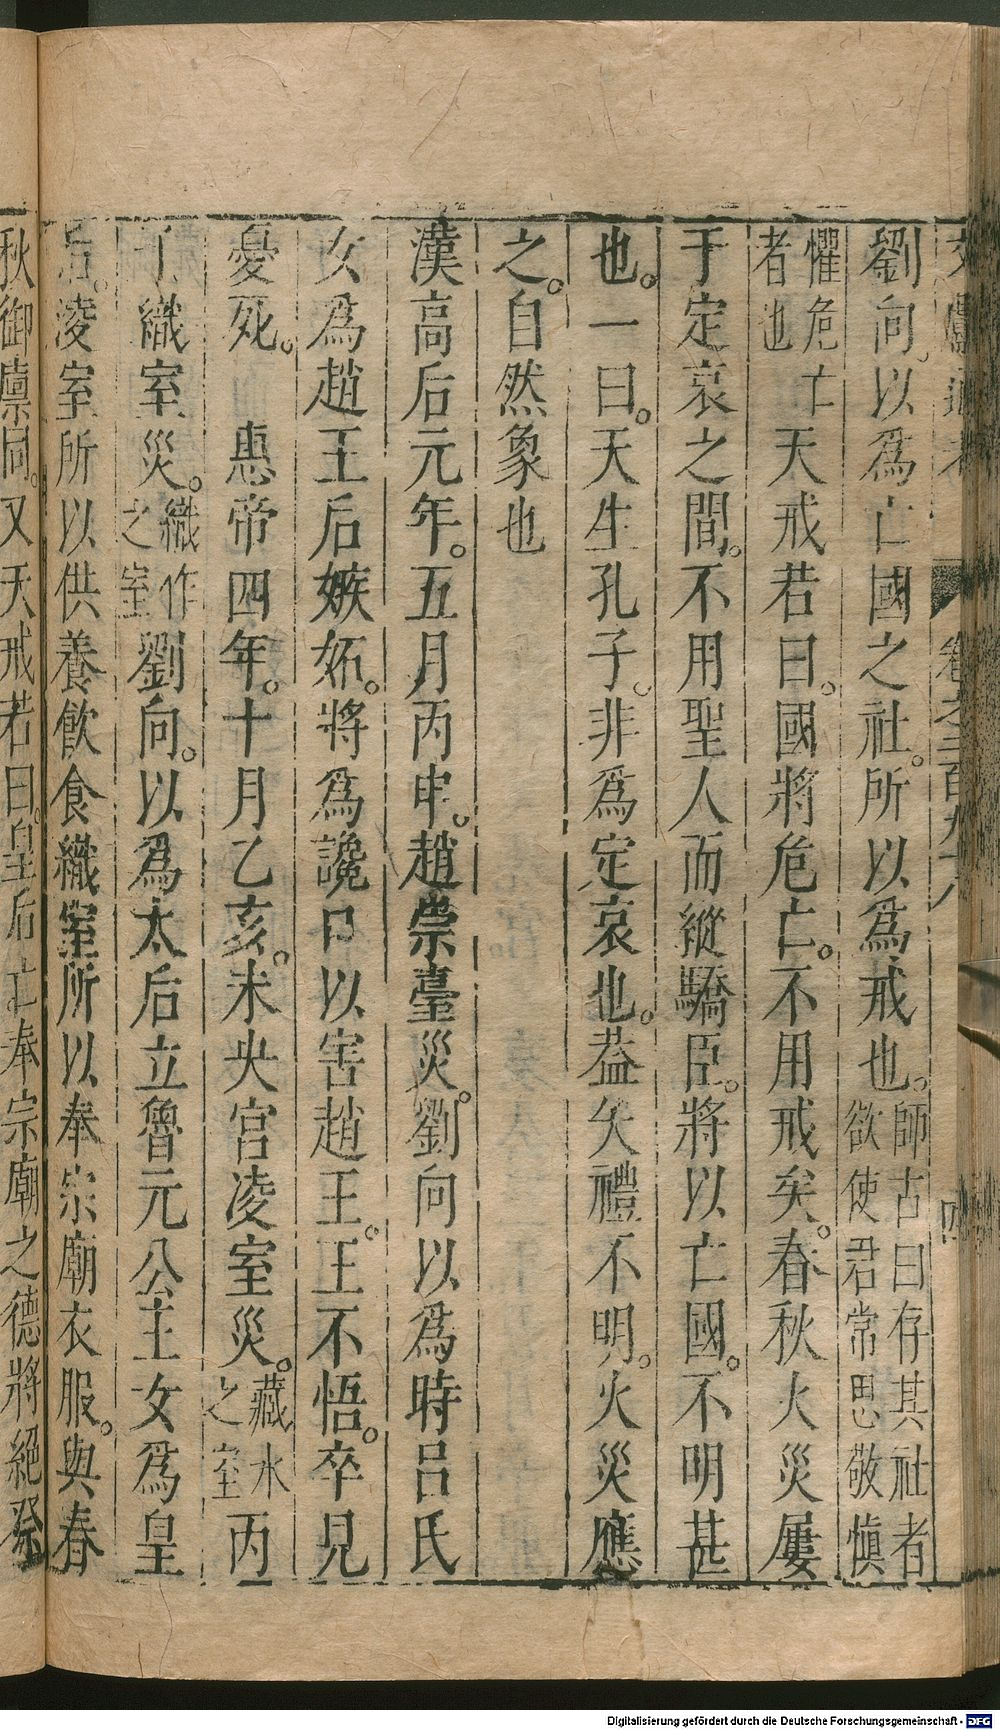 文獻通考 卷之二百九十八 四
劉向。以爲亡國之社。所以爲戒也。師古曰存其社者欲使君常思敬慎
懼危亡者也天戒若曰。國將危亡。不用戒矣。春秋火災屢
于定哀之間。不用聖人而縱驕臣。將以亡國。不明甚
也。一曰。天生孔子。非爲定哀也。葢失禮不明。火災應
之。自然象也
漢高后元年。五月丙申。趙崇臺災。劉向以爲時呂氏
女爲趙王后嫉妬。將爲讒口以害趙王。王不悟。卒見
憂死。 惠帝四年。十月乙亥。未央宮凌室災。藏氷之室丙
丁織室災。織作之室劉向。以爲太后立魯元公主女爲皇
后。凌室所以供養飲食織室所以奉宗廟衣服。與春
秋御廪同。又天戒若曰。皇后亡奉宗廟之德將絕祭
Digitalisierung gefördert durch die Deutsche Forschungsgemeinschaft - DFG